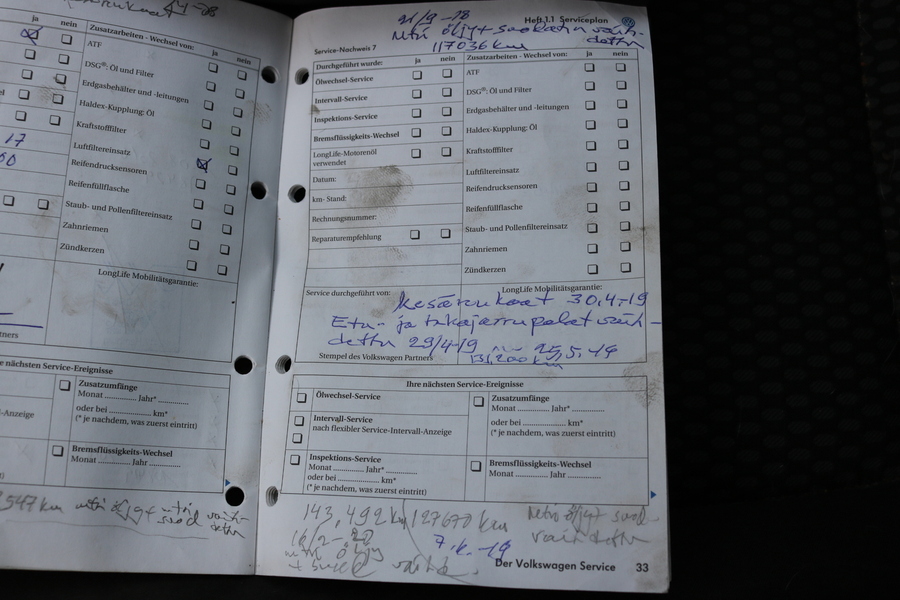 44-28
ja nein
Zusatzarbeiten - Wechsel von: ja nein
ATF
DSG®: Öl und Filter
Erdgasbehälter und -leitungen
Haldex-Kupplung: Öl
Kraftstofffilter
17
Luftfiltereinsatz
Reifendrucksensoren
Reifenfüllflasche
Staub- und Pollenfiltereinsatz
Zahnriemen
Zündkerzen
LongLife Mobilitätsgarantie:
tners
e nächsten Service-Ereignisse
Zusatzumfänge
Monat ............. Jahr* .............
oder bei .................... km*
(* je nachdem, was zuerst eintritt)
-Anzeige
Bremsflüssigkeits-Wechsel
Monat ............. Jahr .............
547 km
21/9 -18 Heft 1.1 Serviceplan
öljyt
Service-Nachweis 7 117036 km
Durchgeführt wurde: ja nein
Ölwechsel-Service
Intervall-Service
Inspektions-Service
Bremsflüssigkeits-Wechsel
LongLife-Motorenöl
verwendet
Datum:
km- Stand:
Rechnungsnummer:
Reparaturempfehlung
Zusatzarbeiten - Wechsel von: ja nein
ATF
DSG®: Öl und Filter
Erdgasbehälter und -leitungen
Haldex-Kupplung: Öl
Kraftstofffilter
Luftfiltereinsatz
Reifendrucksensoren
Reifenfüllflasche
Staub- und Pollenfiltereinsatz
Zahnriemen
Zündkerzen
Service durchgeführt von: LongLife Mobilitätsgarantie:
Kesärenkaat 30.4-19
Etu- ja takajarrupalat vaih-
dettu 29/4-19
Stempel des Volkswagen Partners
Ihre nächsten Service-Ereignisse
Ölwechsel-Service
Intervall-Service
nach flexibler Service-Intervall-Anzeige
Inspektions-Service
Monat ............. Jahr* .............
oder bei .................... km*
(* je nachdem, was zuerst eintritt)
Zusatzumfänge
Monat ............. Jahr* .............
oder bei .................... km*
(* je nachdem, was zuerst eintritt)
Bremsflüssigkeits-Wechsel
Monat ............. Jahr .............
143,492 km 127670 km
vaihdettu
Der Volkswagen Service 33